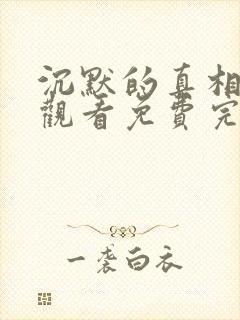 沉默的真相
觀看免費完
一袭白衣